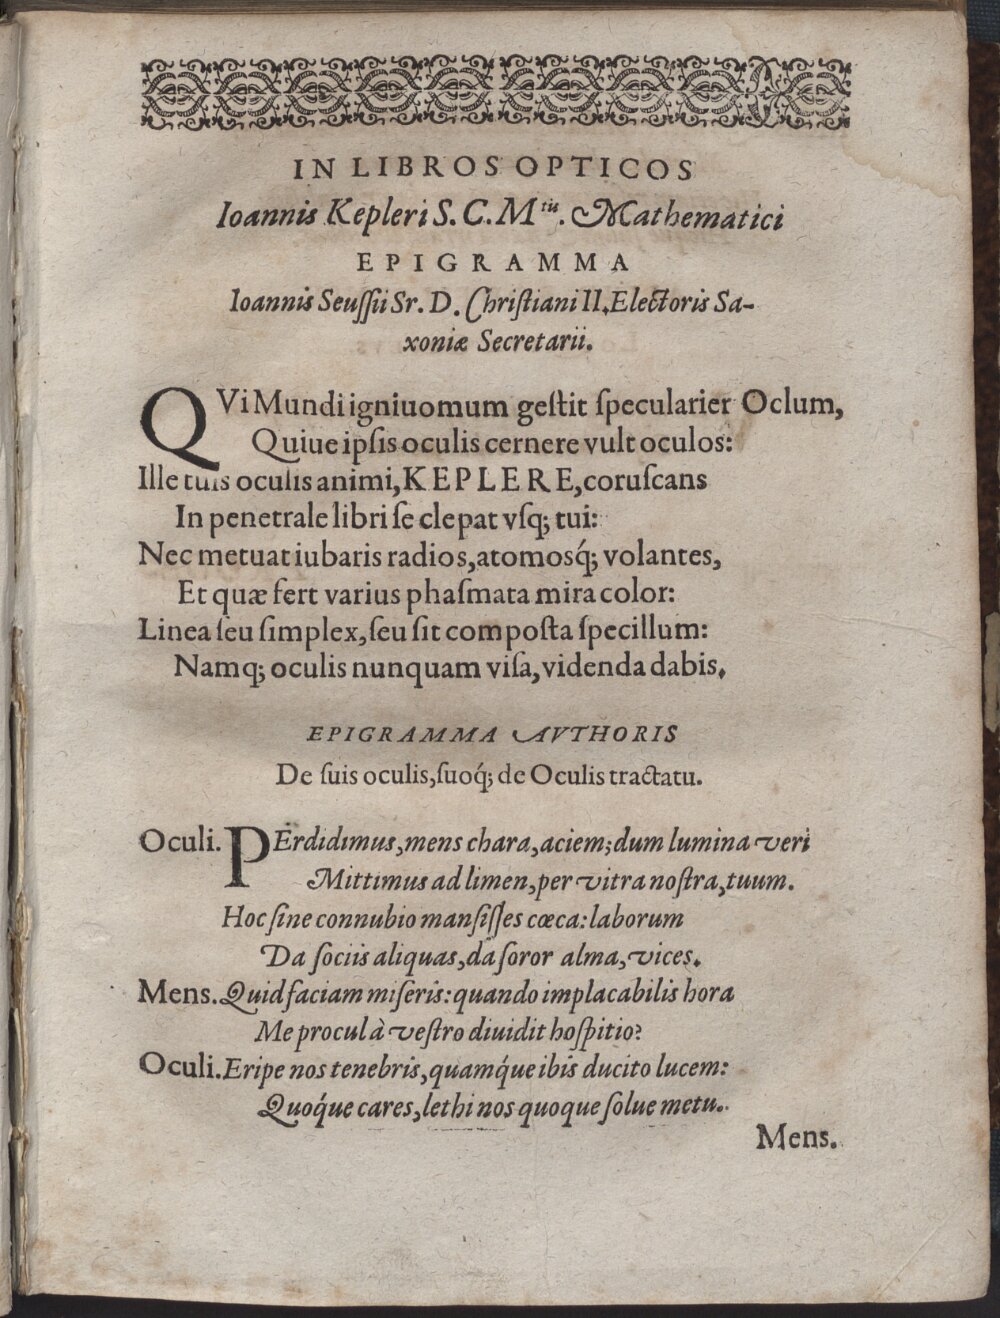 IN LIBROS OPTICOS
Ioannis Kepleri S. C. M^tis. Mathematici
EPIGRAMMA
Ioannis Seußii Sr. D. Christiani II. Electoris Sa-
xoniæ Secretarii.
QVi Mundi igniuomum gestit specularier Oclum,
Quiue ipsis oculis cernere vult oculos:
Ille tuis oculis animi, KEPLERE, coruscans
In penetrale libri se clepat vsq; tui:
Nec metuat iubaris radios, atomosq́; volantes,
Et quæ fert varius phasmata mira color:
Linea seu simplex, seu sit composta specillum:
Namq; oculis nunquam visa, videnda dabis.
EPIGRAMMA AVTHORIS
De suis oculis, suoq́; de Oculis tractatu.
Oculi. PErdidimus, mens chara, aciem; dum lumina veri
Mittimus ad limen, per vitra nostra, tuum.
Hoc sine connubio mansisses cœca: laborum
Da sociis aliquas, da soror alma, vices.
Mens. Quid faciam miseris: quando implacabilis hora
Me procul à vestro diuidit hospitio?
Oculi. Eripe nos tenebris, quamq́ue ibis ducito lucem:
Quoq́ue cares, lethi nos quoque solue metu.
Mens.